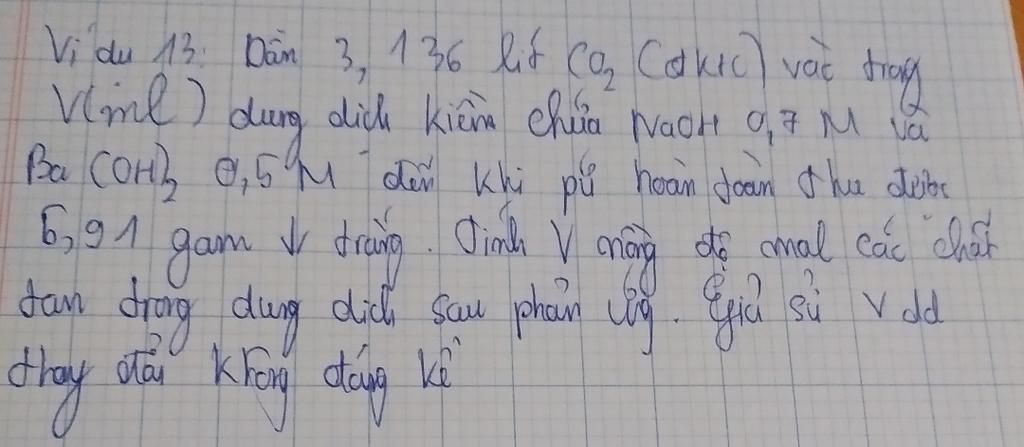 Ví dụ 13: Dẫn 3,136 lít CO₂ (đktc) vào trong
V(ml) dung dịch kiềm chứa NaOH 0,7 M và
Ba(OH)₂ 0,5 M đến khi pứ hoàn toàn thu được
5,91 gam ↓ trắng. Tính V nồng độ mol các chất
tan trong dung dịch sau phản ứng. Giả sử V dd
thay đổi không đáng kể